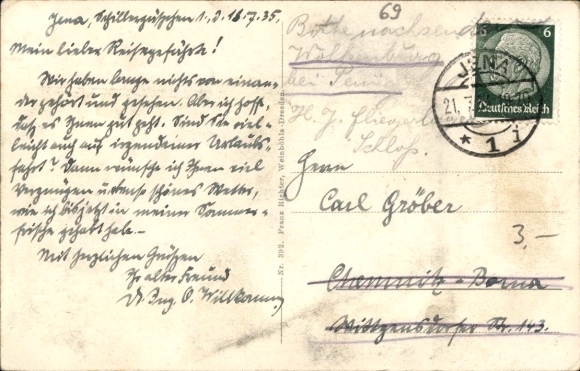 Jena, Schillergässchen 1, d. 18.7.35.
Mein lieber Reisegefährte!
Wir haben lange nichts von einan-
der gehört und gesehen. Aber ich hoffe,
daß es Ihnen gut geht. Sind Sie viel-
leicht auch auf irgendeiner Urlaubs-
fahrt? Dann wünsche ich Ihnen viel
Vergnügen u. ebenso schönes Wetter,
wie ich bis jetzt in meiner Sommer-
frische gehabt habe. –
Mit herzlichen Grüßen
Ihr alter Freund
Dr. Ing. O. Willkomm
Nr. 392. Franz Richter, Weinböhla-Dresden.
69
Bitte nachsenden
bei Penig
H. J. Fliegerlager
Schloß
JENA
21.7.
* 1 i
6
Deutsches Reich
Herrn
Carl Gröber
3,–
Chemnitz-Borna
Wittgensdorfer Str. 143.